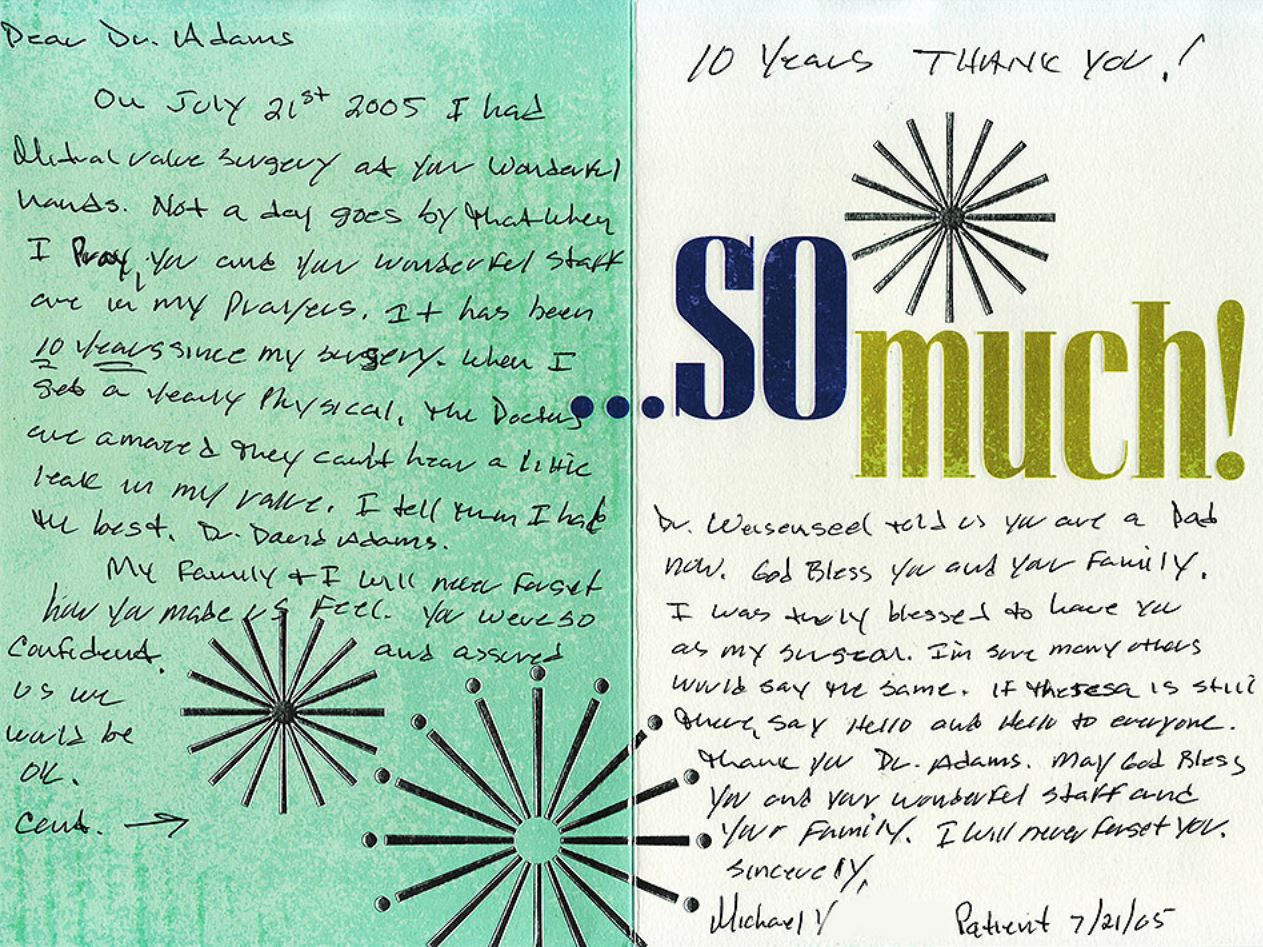 Dear Dr. Adams
On July 21st 2005 I had
Mitral valve surgery at your wonderful
hands. Not a day goes by that when
I Pray, you and your wonderful staff
are in my Prayers. It has been
10 years since my surgery. When I
get a yearly Physical, the Doctors
are amazed they can't hear a little
leak in my valve. I tell them I had
the best. Dr. David Adams.
My Family + I will never forget
how you made us Feel. You were so
Confident. and assured
us we
would be
OK.
Cont. →
10 Years THANK YOU!
...SO
much!
Dr. Weisenseel told us you are a Dad
now. God Bless you and your Family.
I was truly blessed to have you
as my surgeon. I'm sure many others
would say the same. If Theresa is still
there, say Hello and Hello to everyone.
Thank you Dr. Adams. May God Bless
you and your wonderful staff and
your Family. I will never forget you.
Sincerely,
Michael Y
Patient 7/21/05